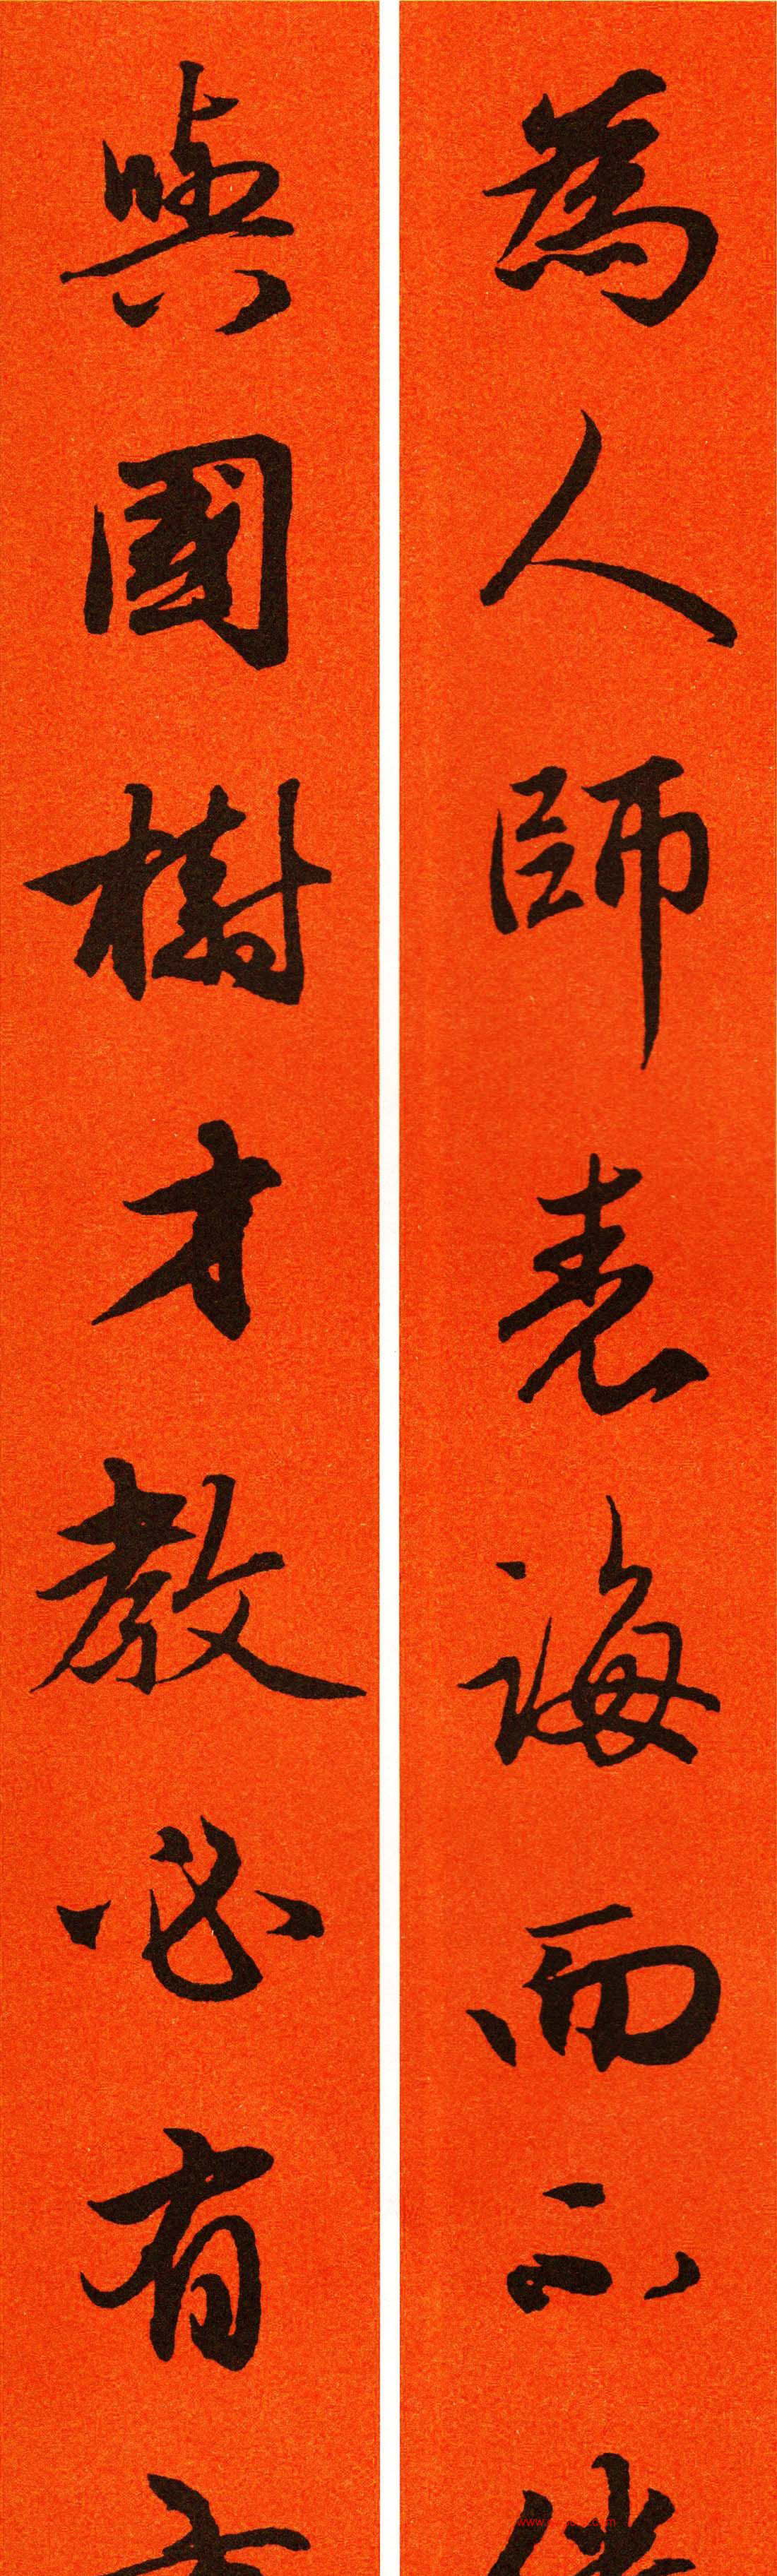 為人師表誨而不
與國樹才教必有